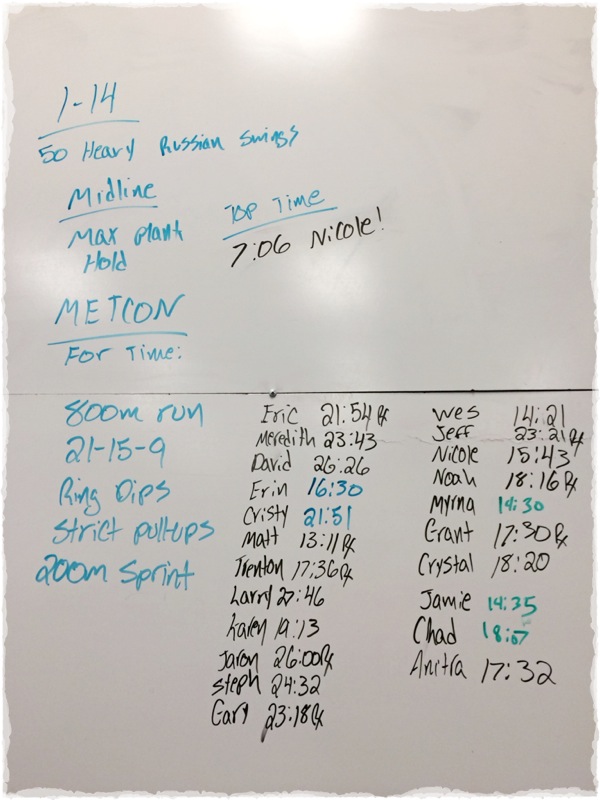 1-14
50 Heavy Russian Swings
Midline
Max plank Hold
Top Time
7:06 Nicole!
METCON
For Time:
800m run
21-15-9
Ring Dips
Strict pullups
200m Sprint
Eric 21:54 Rx
Meredith 23:43
David 26:26
Erin 16:30
Cristy 21:51
Matt 13:11 Rx
Trenton 17:36 Rx
Larry 27:46
Karen 19:13
Jaron 26:00 Rx
Steph 24:32
Gary 23:18 Rx
Wes 14:21
Jeff 23:21 Rx
Nicole 15:43
Noah 18:16 Rx
Myrna 19:30
Grant 17:30 Rx
Crystal 18:20
Jamie 14:35
Chad 18:07
Anitra 17:32